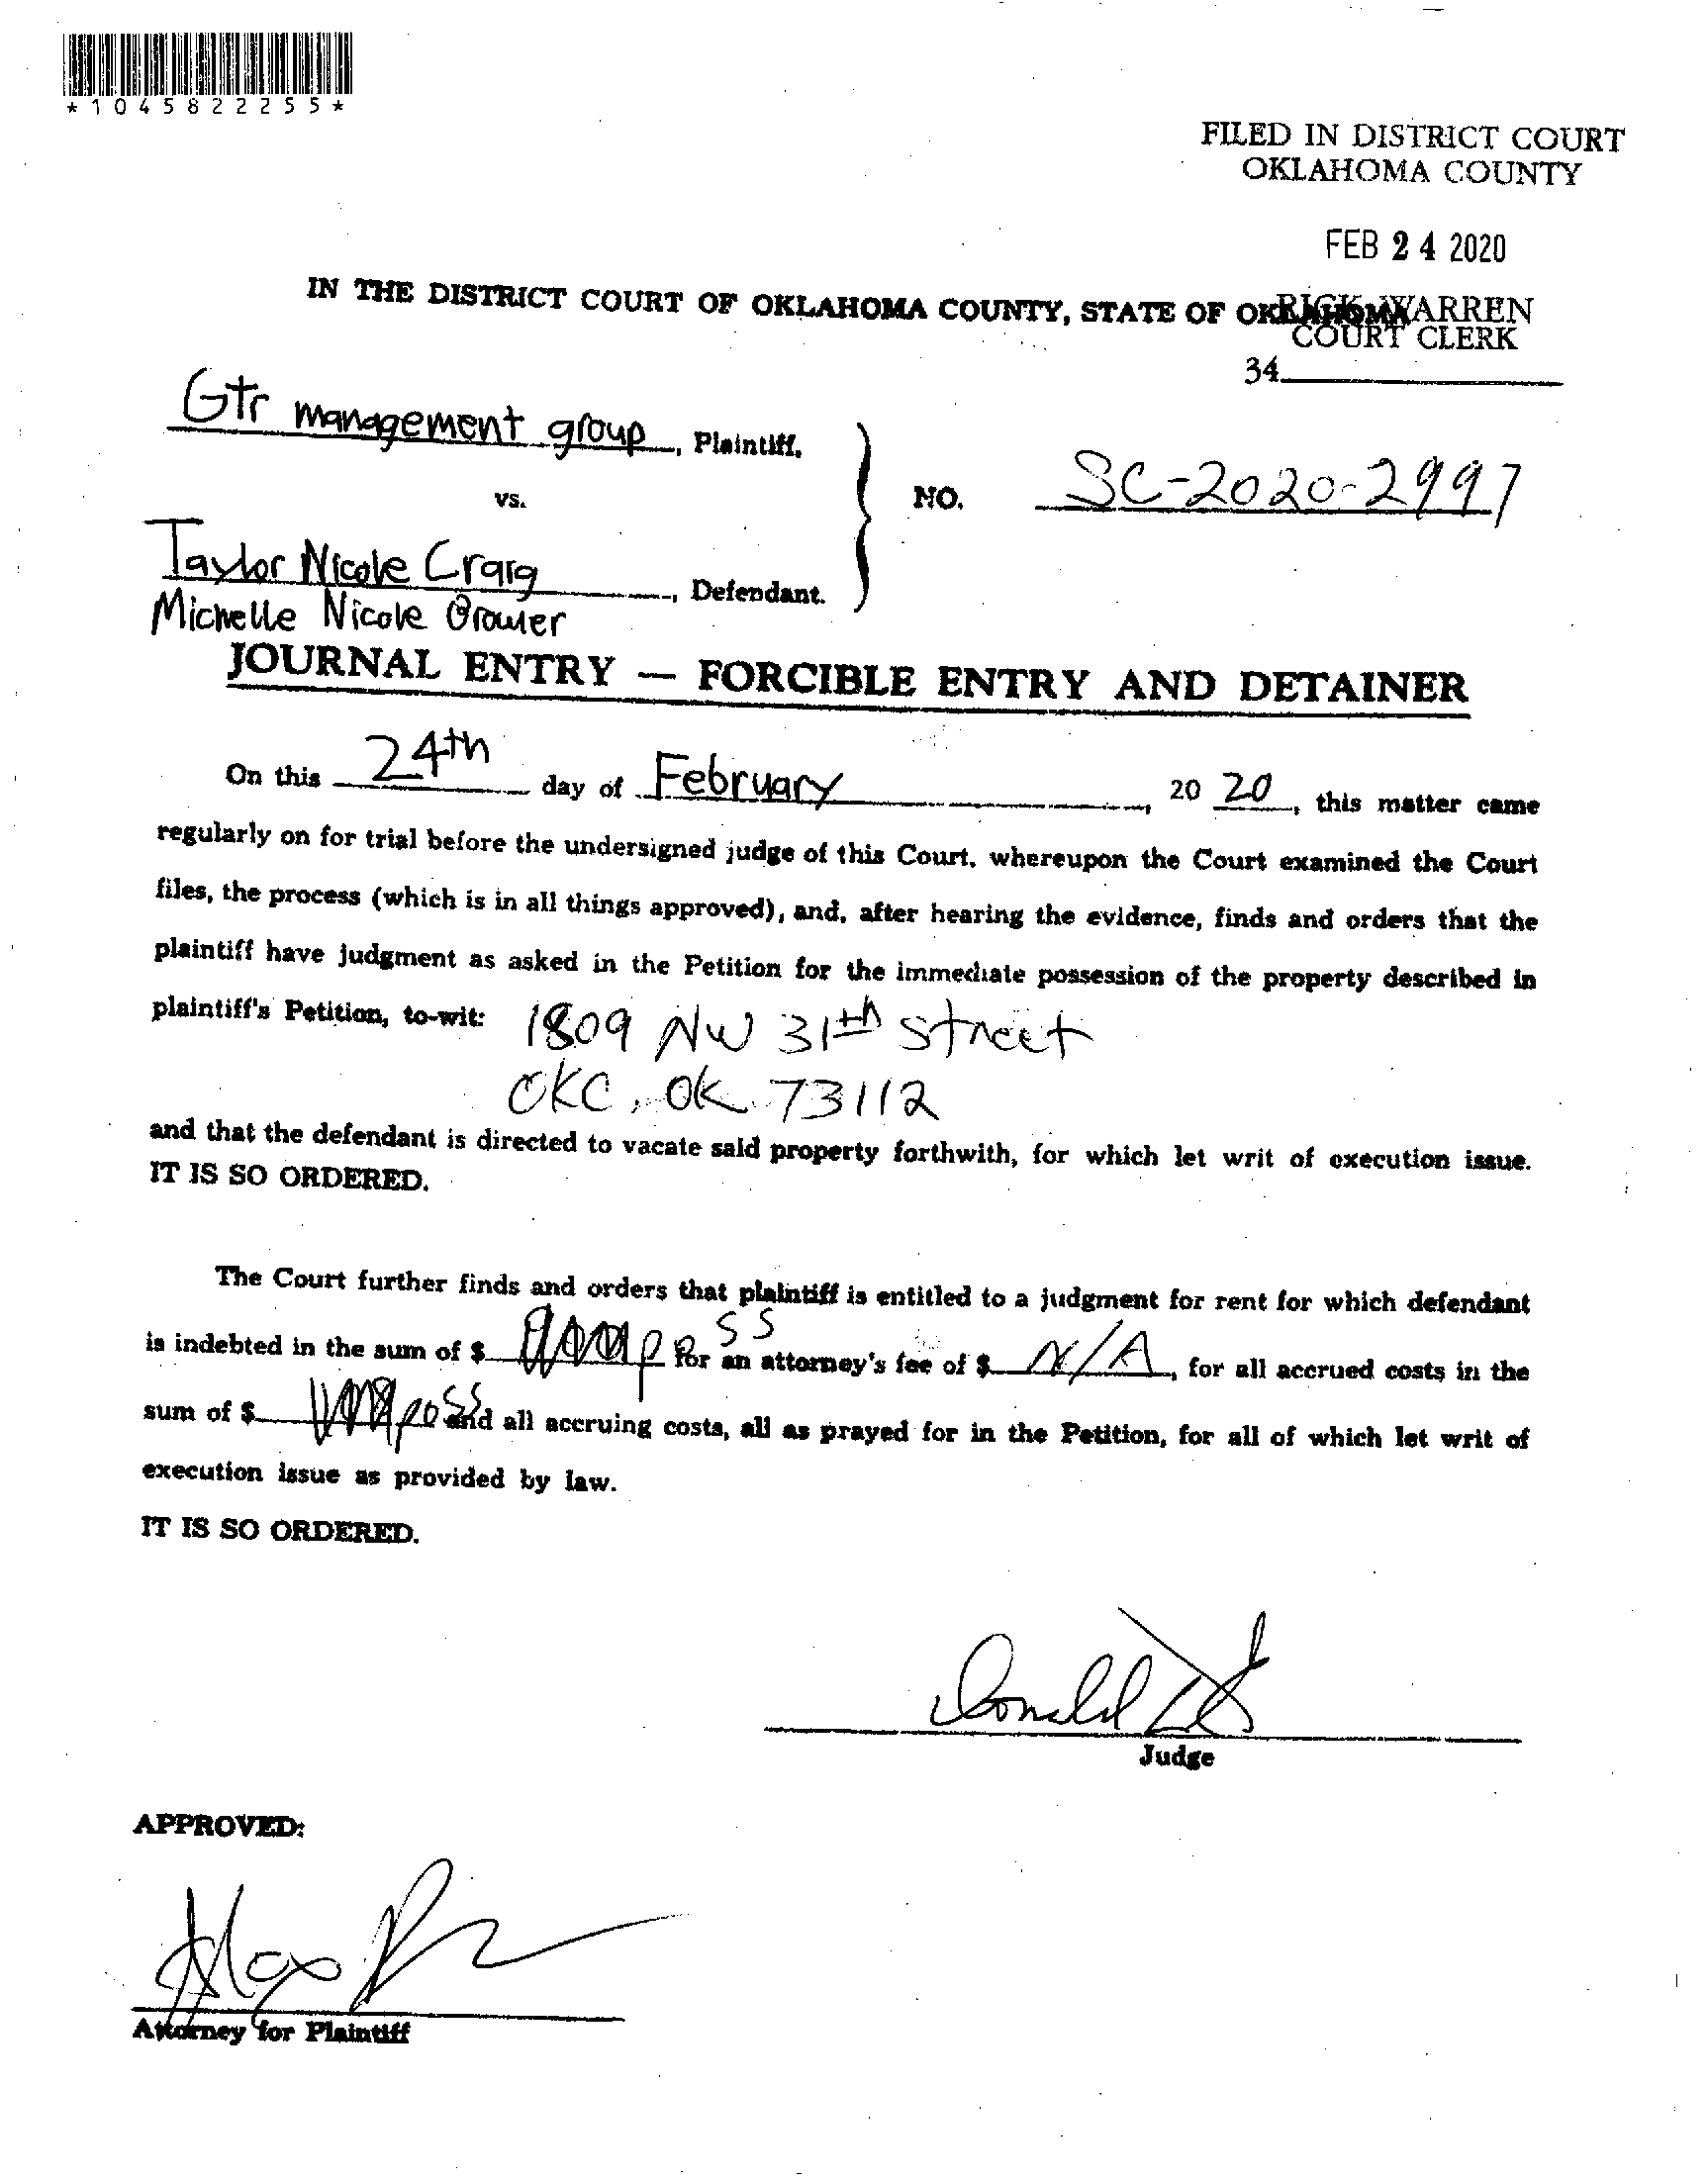 *1045822255*
FILED IN DISTRICT COURT
OKLAHOMA COUNTY
FEB 24 2020
IN THE DISTRICT COURT OF OKLAHOMA COUNTY, STATE OF OKLAHOMA
RICK WARREN
COURT CLERK
34
Gtr management group, Plaintiff,
vs.
NO. SC-2020-2997
Taylor Nicole Craig, Defendant.
Michelle Nicole
JOURNAL ENTRY — FORCIBLE ENTRY AND DETAINER
On this 24th day of February, 20 20, this matter came
regularly on for trial before the undersigned judge of this Court, whereupon the Court examined the Court
files, the process (which is in all things approved), and, after hearing the evidence, finds and orders that the
plaintiff have judgment as asked in the Petition for the immediate possession of the property described in
plaintiff's Petition, to-wit: 1809 NW 31th Street
OKC, OK 73112
and that the defendant is directed to vacate said property forthwith, for which let writ of execution issue.
IT IS SO ORDERED.
The Court further finds and orders that plaintiff is entitled to a judgment for rent for which defendant
is indebted in the sum of $ poss for an attorney's fee of $ N/A, for all accrued costs in the
sum of $ poss and all accruing costs, all as prayed for in the Petition, for all of which let writ of
execution issue as provided by law.
IT IS SO ORDERED.
Donald
Judge
APPROVED:
Attorney for Plaintiff